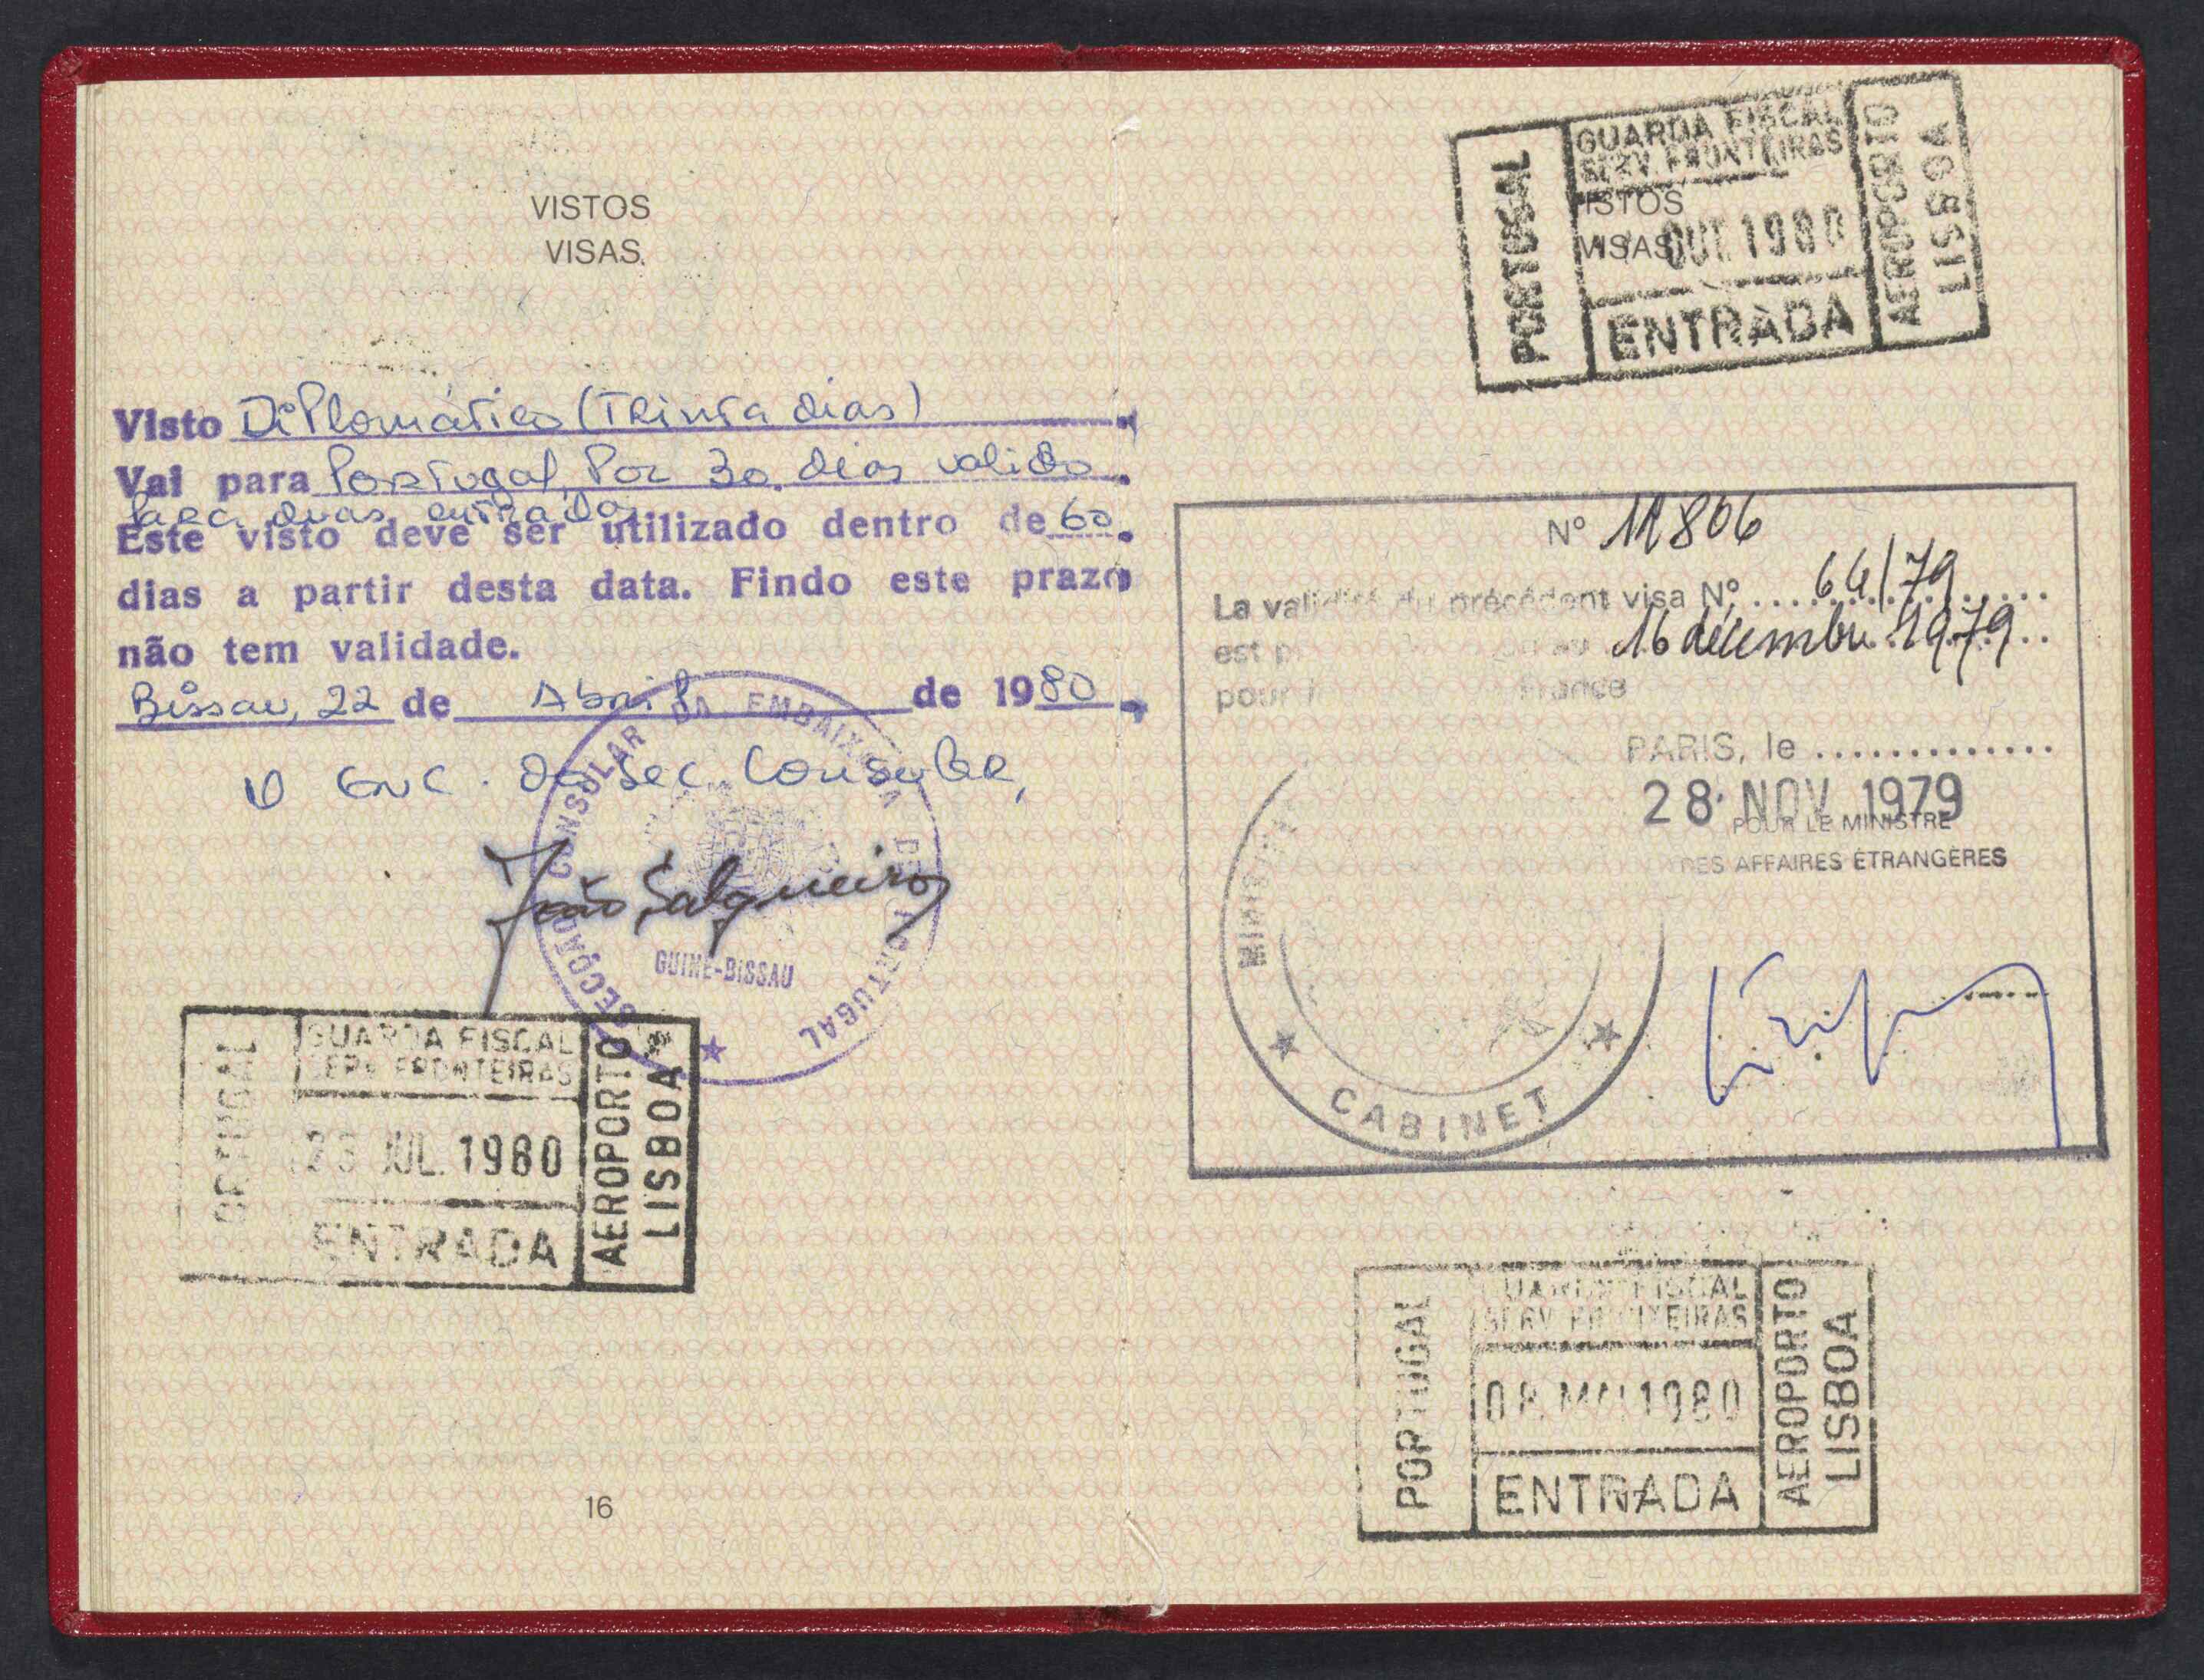 VISTOS
VISAS
Visto Diplomático (Trinta dias)
Vai para Portugal, Por 30 dias valido
Para duas entradas
Este visto deve ser utilizado dentro de 60
dias a partir desta data. Findo este prazo
não tem validade.
Bissau, 22 de Abril de 1980
O Enc. da Sec. Consular,
João Salgueiro
SECÇÃO CONSULAR DA EMBAIXADA DE PORTUGAL
GUINÉ-BISSAU
PORTUGAL
GUARDA FISCAL
SERV. FRONTEIRAS
JUL. 1980
ENTRADA
AEROPORTO
LISBOA
16
PORTUGAL
GUARDA FISCAL
SERV. FRONTEIRAS
VISTOS
VISAS
OUT. 1980
ENTRADA
AEROPORTO
LISBOA
Nº 11806
La validité du précédent visa Nº 64/79
est 16 décembre 1979
pour France
PARIS, le
28 NOV. 1979
POUR LE MINISTRE
DES AFFAIRES ÉTRANGÈRES
CABINET
PORTUGAL
GUARDA FISCAL
SERV. FRONTEIRAS
1980
ENTRADA
AEROPORTO
LISBOA